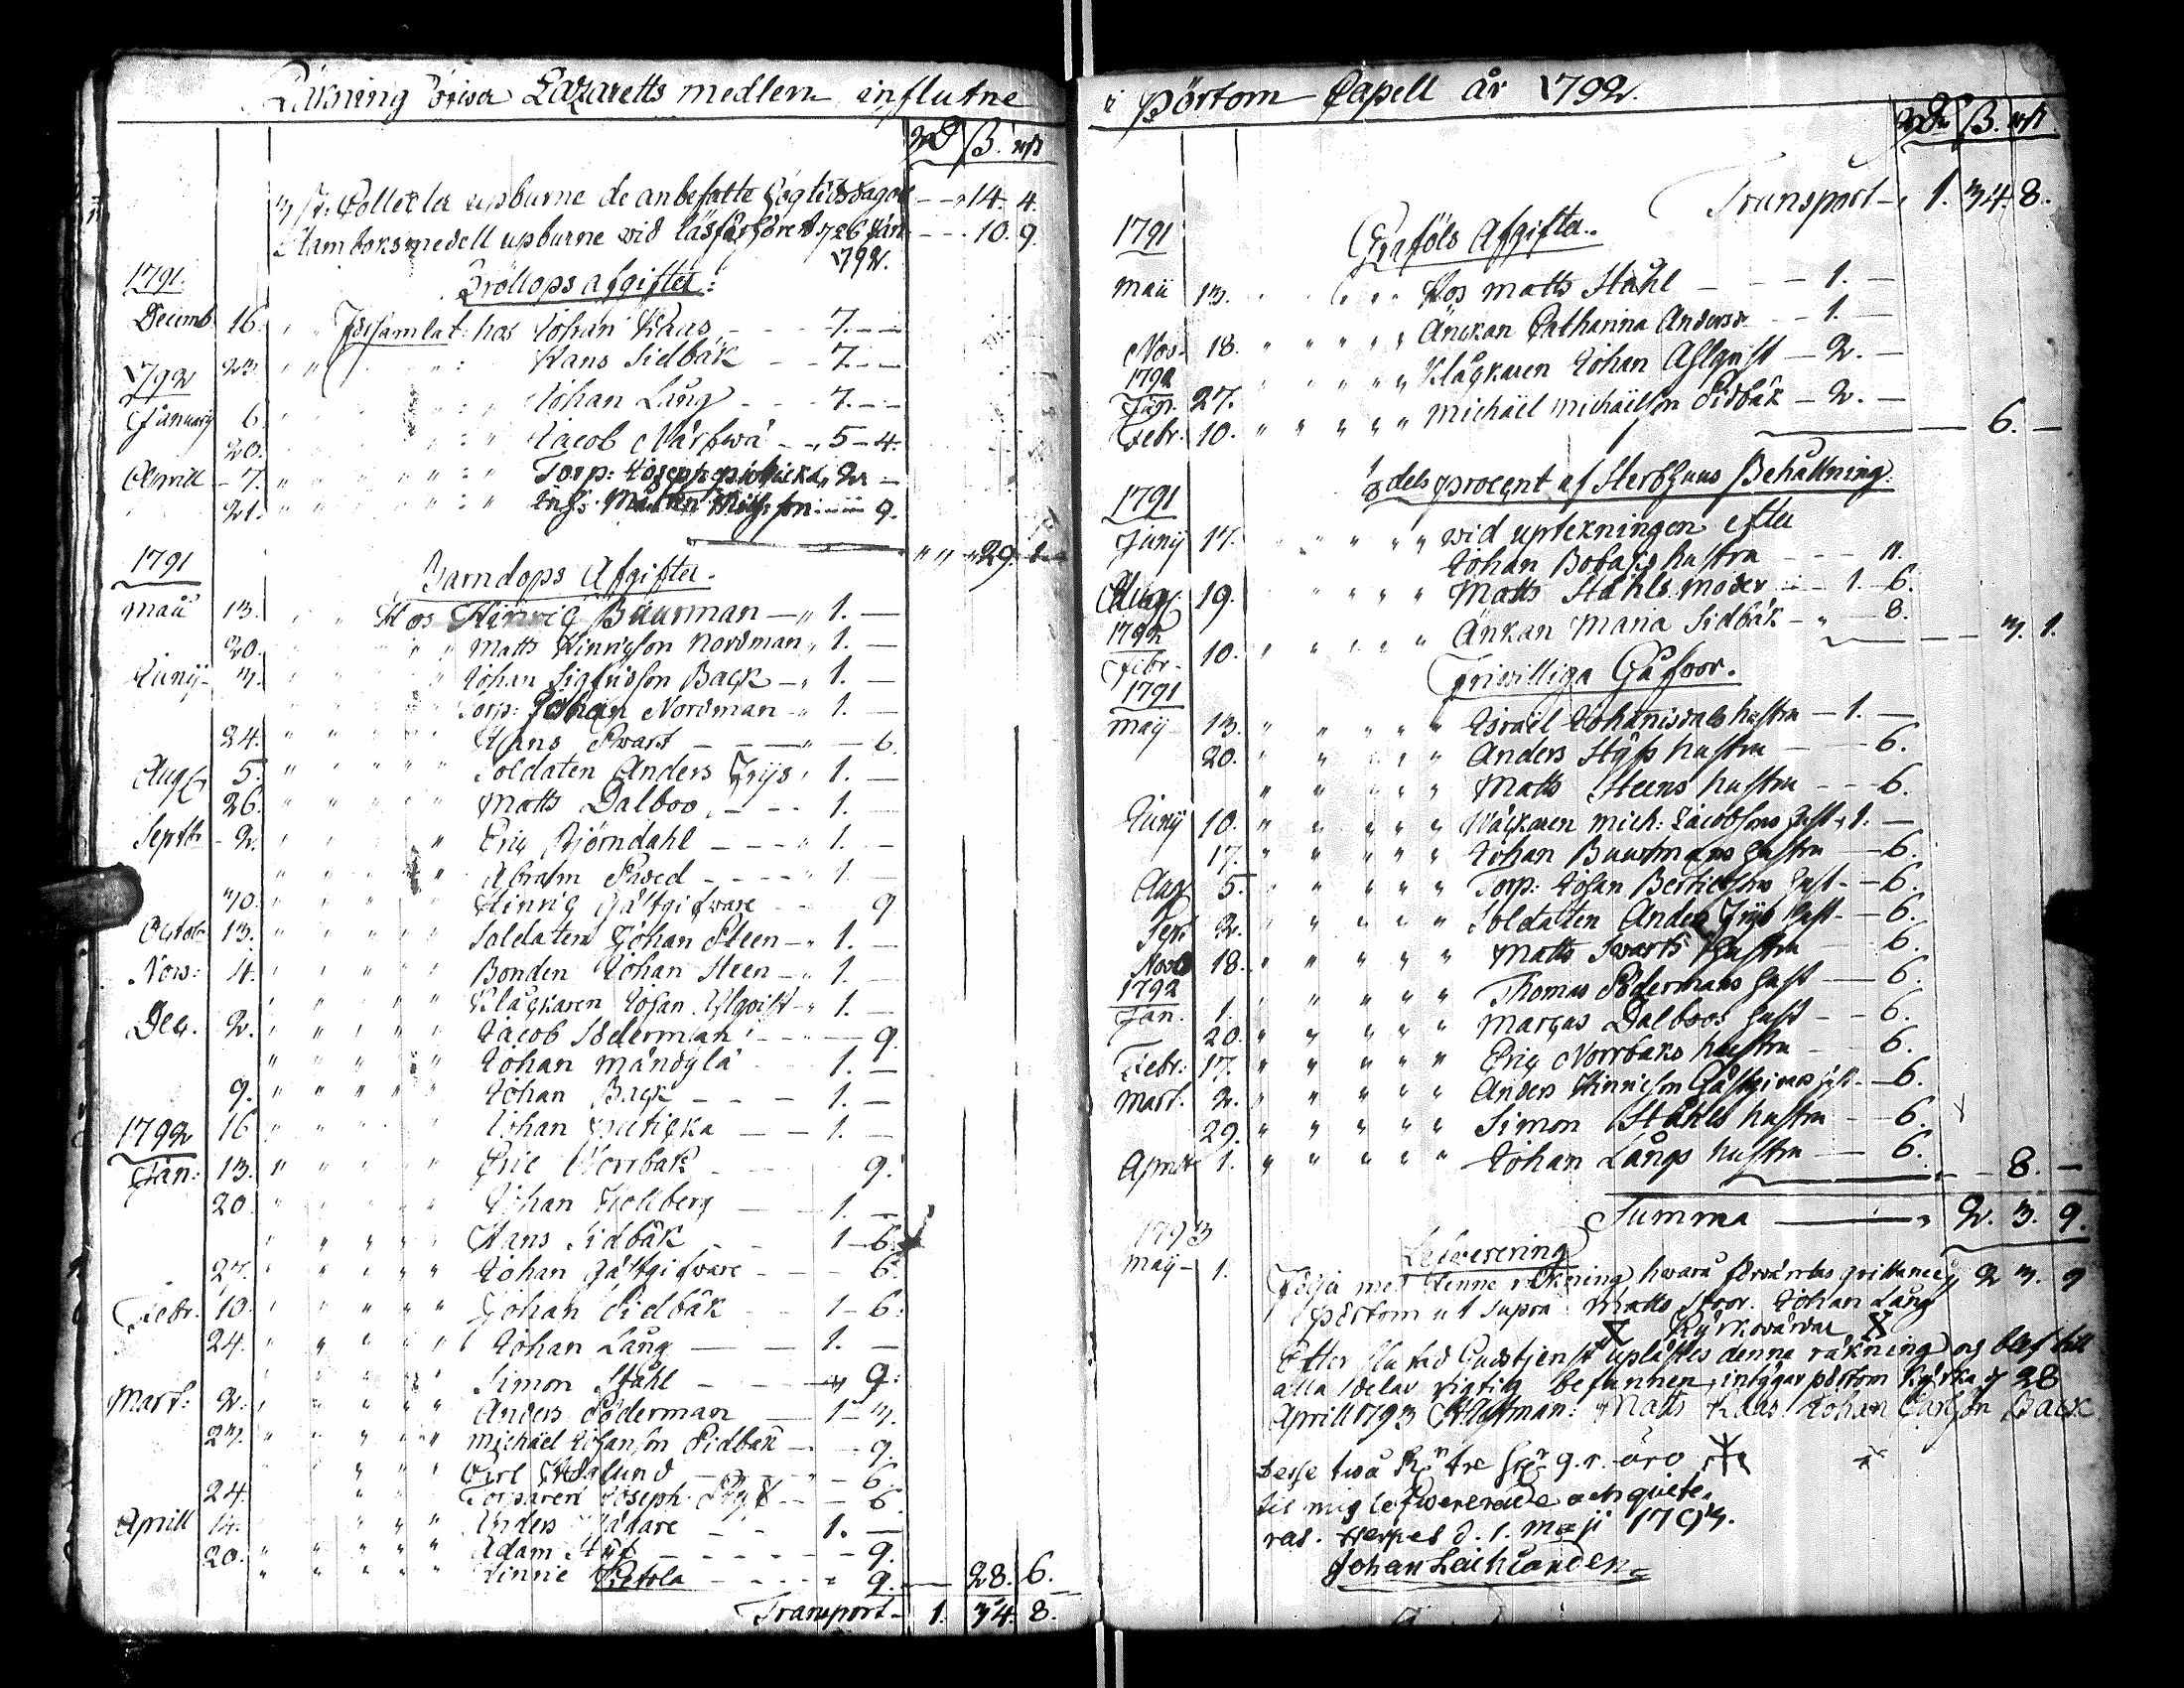 Räkning öfwer Lazaretts medlen influtne
Rd ß. rst
3 st: Collecter upburne de anbefalte Högtidsdagar — 14. 4.
Stamboksmedell upburne wid läsförhören 26 Jan — 10. 9.
1792.
1791. Bröllops afgifter:
Decemb. 16. Församlat hos Johan Klaas — 7. —
23. Hans Sidbäk — 7. —
1792
January 6. Johan Lång — 7. —
20. Jacob Närfwä — 5 — 4.
Aprill 7. Torp: Joseph — 2. —
21. — 9.
29. 1.
1791 Barndops Afgifter.
Maii 13. Hos Hinric Buurman — 1. —
20. Matts Hinricson Nordman 1. —
Junij 3. Johan Sigfridsson Back — 1. —
Torp: Johan Nordman 1. —
24. Hans Swart — 6.
Aug 5. Soldaten Anders Frijs 1. —
26. Matts Dalboo — 1. —
Septb 2. Eric Björndahl — 1. —
Abraham Swed — 1. —
30. Hinric Gästgifware 9
Octob 13. Soldaten Johan Steen — 1. —
Nov: 4. Bonden Johan Steen — 1. —
Klåckaren Johan Ahlqvist 1. —
Dec. 2. Jacob Söderman — 9
Johan Mändylä 1. —
9. Johan Back — 1. —
16 Johan — 1. —
1792
Jan: 13. Eric Norrbäk 9.
20 Johan 1. —
Hans Sidbäk 1 — 6
27. Johan Gästgifware — 6.
Febr. 10. Johan Sidbäk — 1 — 6.
24. Johan Lång — 1. —
Simon Ståhl — 9.
Mart: 2. Anders Söderman 1 — 3.
23. Michäel Johanson Sidbäk — 9.
Carl — 6
24. Torparen Joseph — 6
Aprill 14. Anders 1. —
20. Adam — 9.
Hinric — 9. — 28. 6.
Transport — 1. 34. 8.
i Pörtom Capell år 1792.
Rd ß. rst
Transport — 1. 34. 8.
1791 Graföls Afgifter.
Maii 13. Hos Matts Ståhl — 1. —
Nov. 18. Änckan Catharina Andersd. — 1. —
1792
Jan. 27. Klåckaren Johan Ahlqvist — 2. —
Febr. 10. Michäel Michäelson Sidbäk — 2. —
6. —
1/8 dels procent af Sterbhuus Behållning
1791
Junij 17. wid uptekningen efter
Johan Bobäks hustru — 11.
Aug 19. Matts Ståhls moder — 1. 6.
1792
Febr. 10. Änkan Maria Sidbäk — 8.
3. 1.
Friwilliga Gåfwor.
1791
May 13. Israel Johanisdals hustru — 1. —
20. Anders hustru — 6.
Matts Steens hustru — 6.
Junij 10. Klåckaren Mich: Jacobsons hust. 1. —
17. Johan Buurmans hustru — 6.
Aug 5. Torp: Johan Bertilsons hust. — 6.
Sept 2. Soldaten Anders Frijs hust. — 6.
Nov 18. Matts Swarts hustru — 6.
1792
Jan. 1. Thomas Södermans hust — 6.
20. Marcus Dalboos hust — 6.
Febr: 17. Eric Norrbäks hustru — 6.
Mart. 2. Anders Hinricson Gästgivars hust. — 6.
29. Simon Ståhls hustru — 6.
April 1. Johan Långs hustru — 6.
8. —
Summa — 2. 3. 9.
1793 Lefwerering
May 1. Följa med denne räkning hwarå förväntas qvittance 2 3. 9
Pörtom ut supra Matts Stor. Johan Lång
Kyrkowärdar
Efter slutad Gudstjenst uplästes denna räkning och blef till
alla delar rigtig befunnen, intygar Pörtom Kyrka d 28
April 1793 Matts Klaas Johan Carlson Back
Desse två Rd tre 9. r. äro
til mig lefwererade och quite-
ras. d. 1. Maji 1793.
Johan